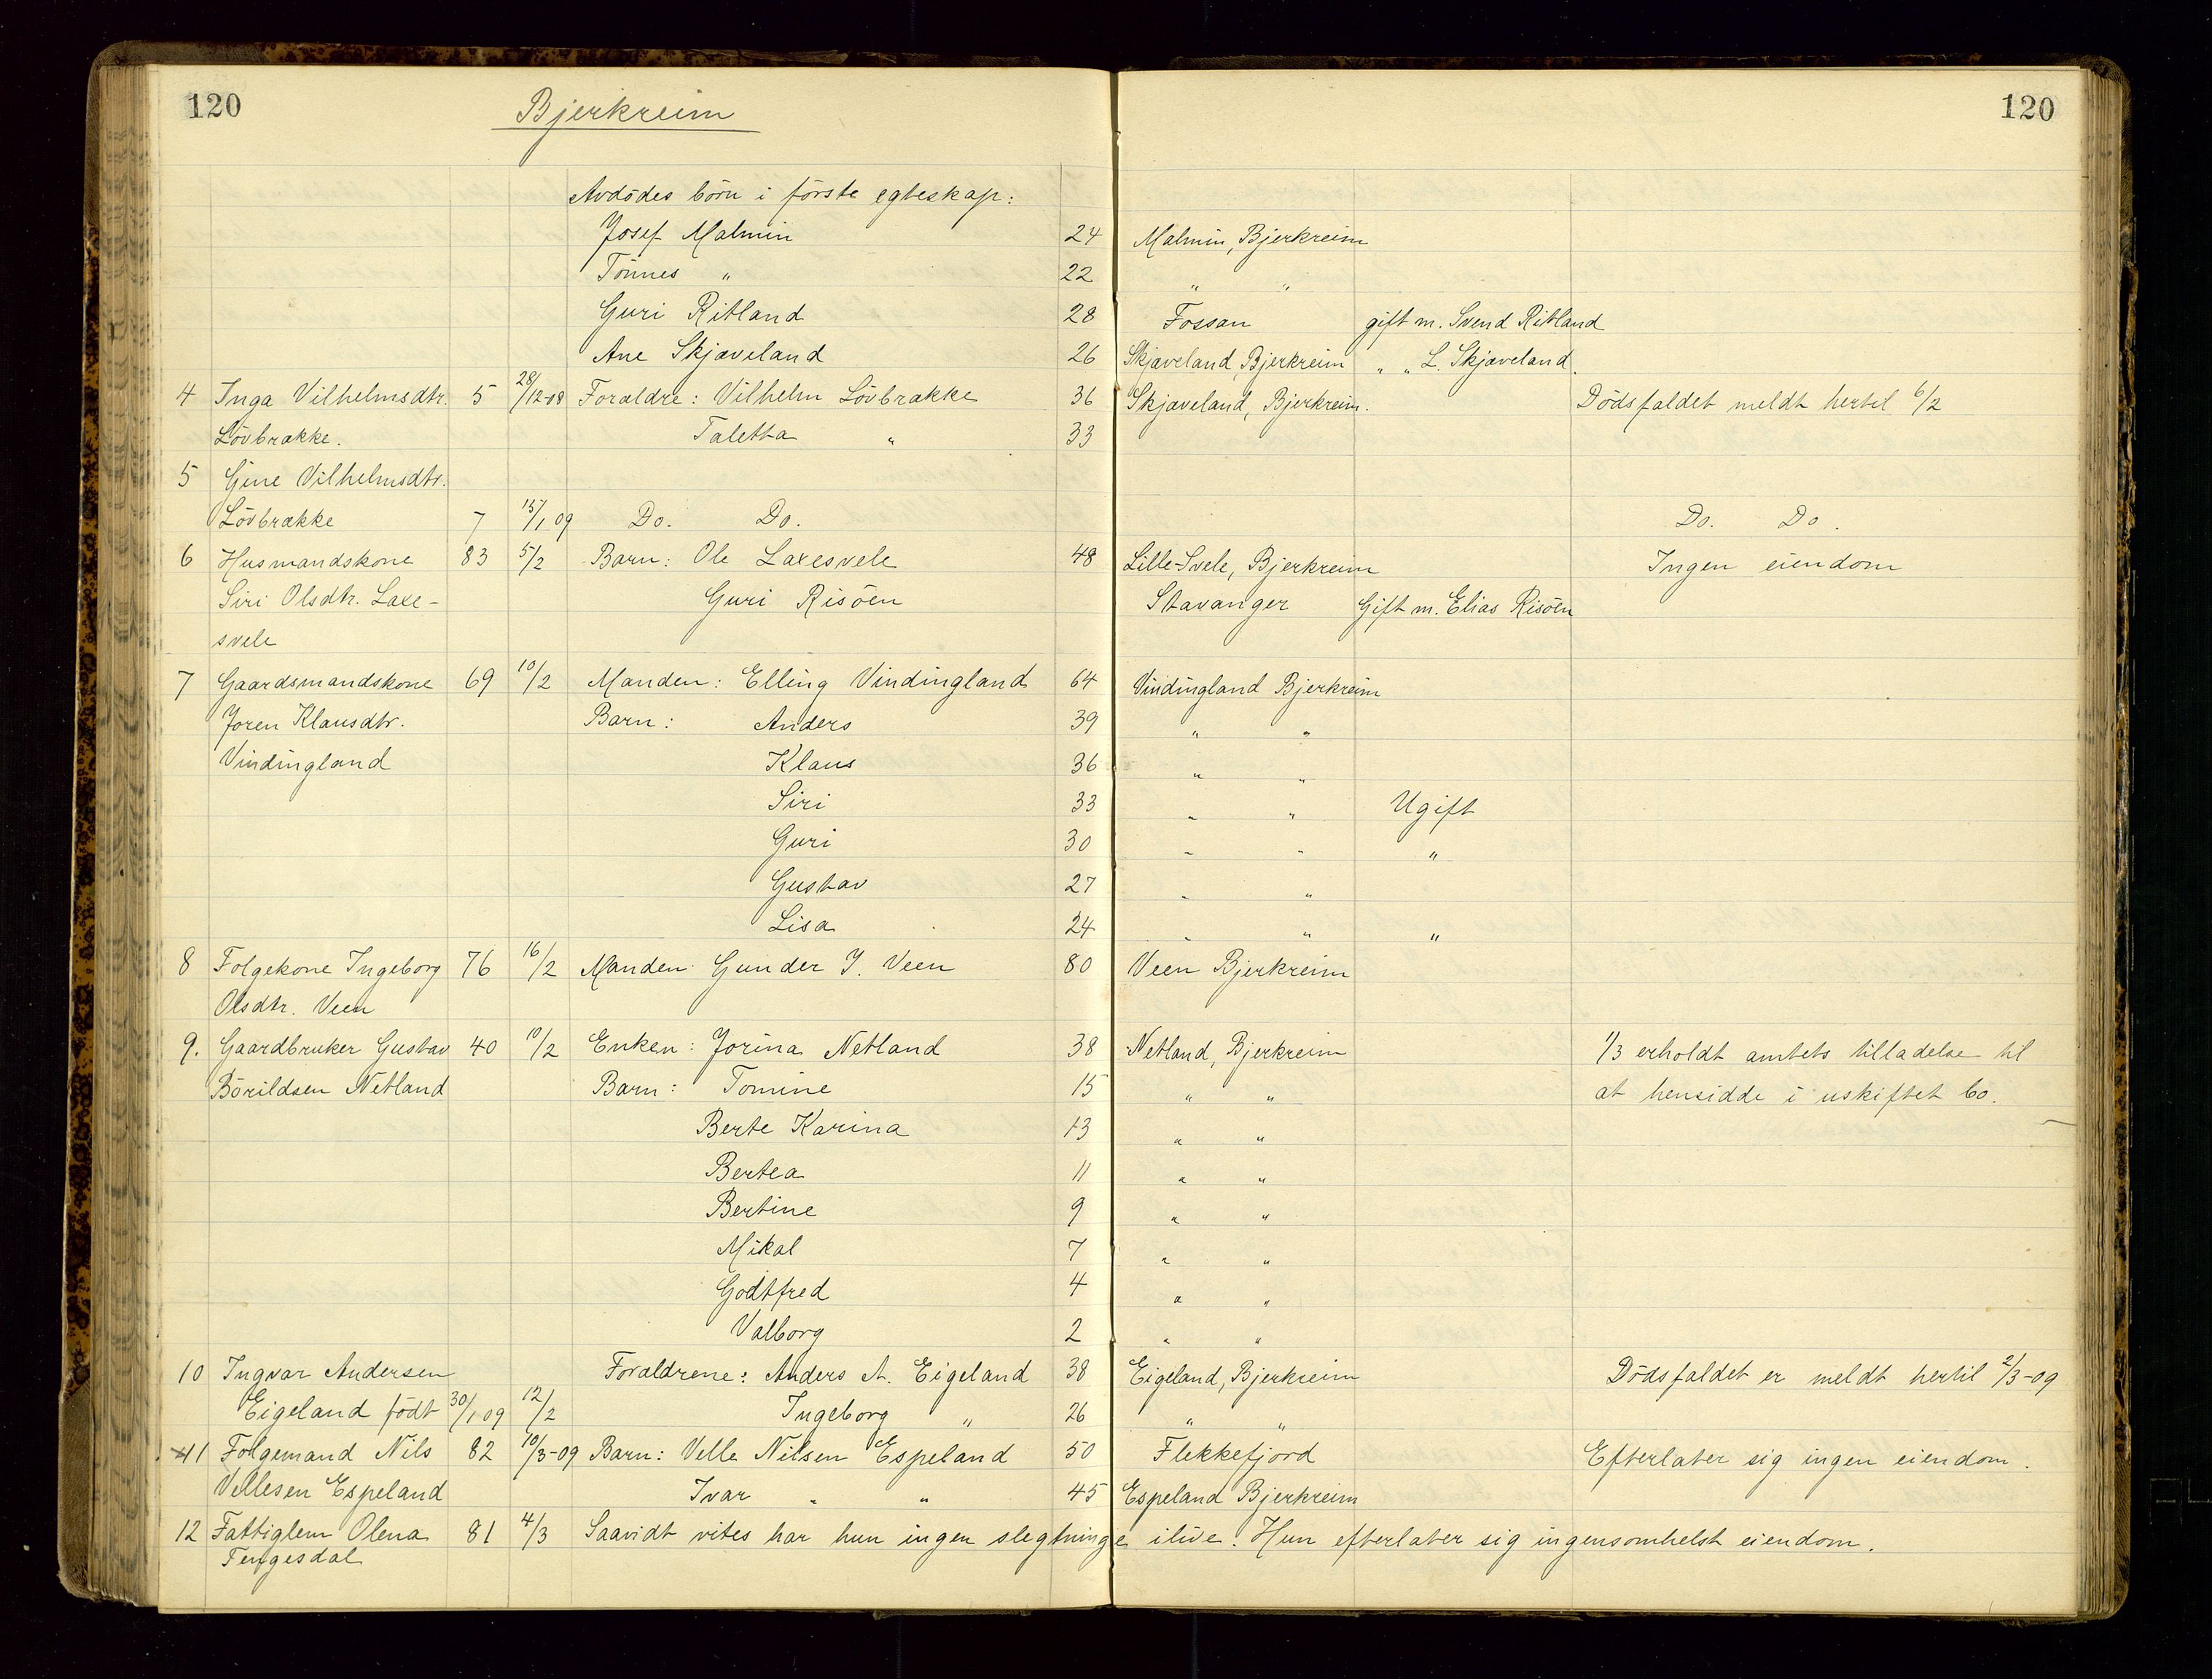 120 Bjerkreim 120
Avdödes börn i förste egteskap:
Josef Malmin 24 Malmin, Bjerkreim
Tönnes " 22 " "
Guri Ritland 28 Fossan gift m. Svend Ritland
Ane Skjæveland 26 Skjæveland, Bjerkreim " " L. Skjæveland.
4 Inga Vilhelmsdtr. 5 28/12 08 Forældre: Vilhelm Lövbrække 36 Skjæveland, Bjerkreim. Dödsfaldet meldt hertil 6/2
Lövbrække. Taletta " 33
5 Gine Vilhelmsdtr.
Lövbrække 7 15/1 09 Do. Do. Do. Do.
6 Husmandskone 83 5/2 Barn: Ole Laxesvele 48 Lille-Svele, Bjerkreim Ingen eiendom
Siri Olsdtr. Laxe- Guri Risöen Stavanger Gift m. Elias Risöen
svele
7 Gaardsmandskone 69 10/2 Manden: Elling Vindingland 64 Vindingland Bjerkreim
Joren Klausdtr. Barn: Anders 39 " "
Vindingland Klaus 36 " "
Siri 33 " " Ugift
Guri 30 " " "
Gustav 27 " "
Lisa 24 " " "
8 Folgekone Ingeborg 76 16/2 Manden: Gunder J. Veen 80 Veen Bjerkreim
Olsdtr. Veen
9. Gaardbruker Gustav 40 10/2 Enken: Jorina Netland 38 Netland, Bjerkreim 1/3 erholdt amtets tilladelse til
Börildsen Netland Barn: Tomine 15 " " at hensidde i uskiftet bo.
Berte Karina 13 " "
Bertea 11 " "
Bertine 9 " "
Mikal 7 " "
Godtfred 4 " "
Valborg 2 " "
10 Ingvar Andersen Forældrene: Anders A. Eigeland 38 Eigeland, Bjerkreim Dödsfaldet er meldt hertil 2/3-09
Eigeland födt 30/1 09 12/2 Ingeborg " 26 " "
11 Folgemand Nils 82 10/3-09 Barn: Velle Nilsen Espeland 50 Flekkefjord Efterlater sig ingen eiendom.
Vellesen Espeland Ivar " " 45 Espeland Bjerkreim
12 Fattiglem Olena 81 4/3 Saavidt vites har hun ingen slegtninge ilive. Hun efterlater sig ingensomhelst eiendom.
Tengesdal